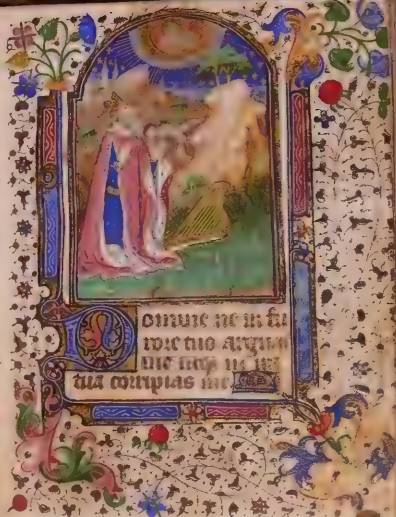 Domine ne in fu
rore tuo arguas
me neq; in ira
tua corripias me